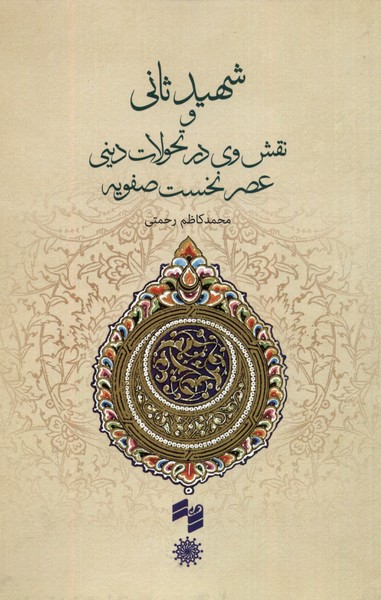 شهید ثانی
و
نقش وی در تحولات دینی
عصر نخست صفویه
محمدکاظم رحمتی